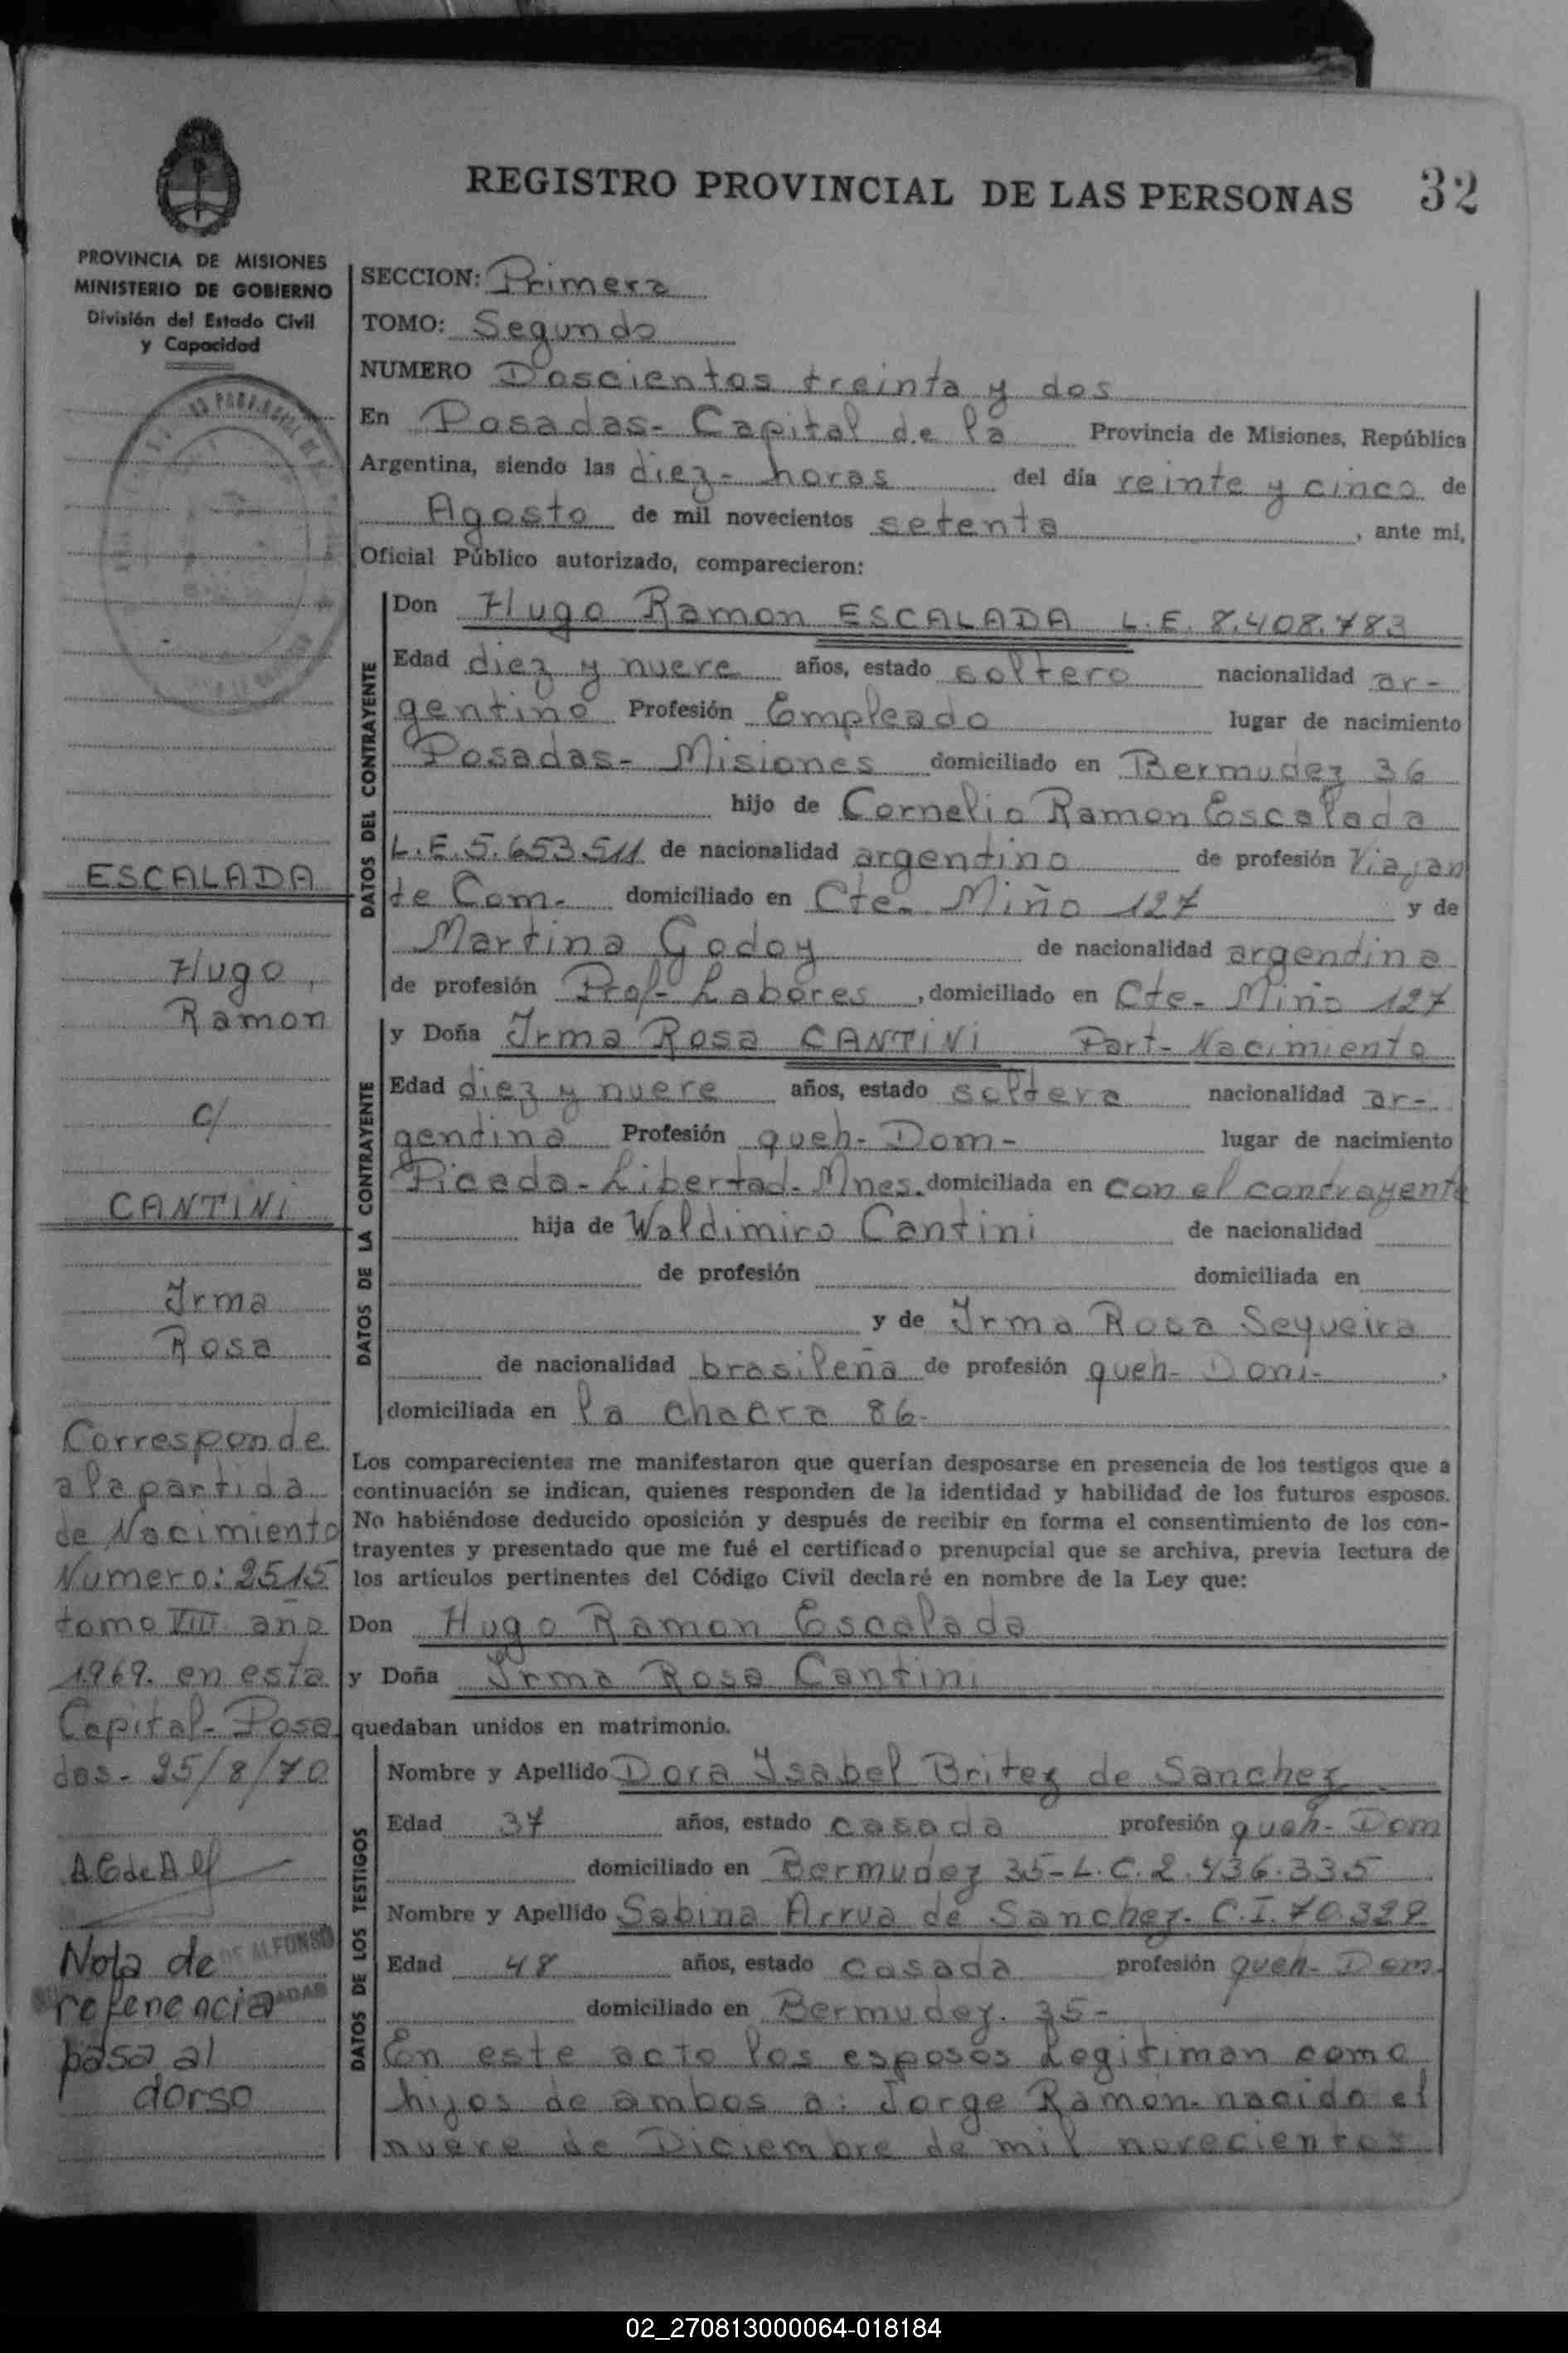 REGISTRO PROVINCIAL DE LAS PERSONAS 32
PROVINCIA DE MISIONES
MINISTERIO DE GOBIERNO
División del Estado Civil
y Capacidad
ESCALADA
Hugo
Ramon
c/
CANTINI
Irma
Rosa
Corresponde
a la partida
de Nacimiento
Numero: 2515
tomo VIII año
1969. en esta
Capital- Posa
das- 25/8/70
Nota de
referencia
pasa al
dorso
SECCION: Primera
TOMO: Segundo
NUMERO Doscientos treinta y dos
En Posadas- Capital de la Provincia de Misiones, República
Argentina, siendo las diez- horas del día veinte y cinco de
Agosto de mil novecientos setenta, ante mi,
Oficial Público autorizado, comparecieron:
DATOS DEL CONTRAYENTE
Don Hugo Ramon ESCALADA L.E. 8.408.783
Edad diez y nueve años, estado soltero nacionalidad ar-
gentino Profesión Empleado lugar de nacimiento
Posadas- Misiones domiciliado en Bermudez 36
hijo de Cornelio Ramon Escalada
L.E. 5.653.511 de nacionalidad argentino de profesión Viajan
te Com- domiciliado en Cte- Miño 127 y de
Martina Godoy de nacionalidad argentina
de profesión Prof- Labores, domiciliado en Cte- Miño 127
DATOS DE LA CONTRAYENTE
y Doña Irma Rosa CANTINI Part- Nacimiento
Edad diez y nueve años, estado soltera nacionalidad ar-
gentina Profesión queh- Dom- lugar de nacimiento
Picada- Libertad- Mnes. domiciliada en con el contrayente
hija de Waldimiro Cantini de nacionalidad
de profesión domiciliada en
y de Irma Rosa Seyueira
de nacionalidad brasileña de profesión queh- Dom-.
domiciliada en la chacra 86-
Los comparecientes me manifestaron que querían desposarse en presencia de los testigos que a
continuación se indican, quienes responden de la identidad y habilidad de los futuros esposos.
No habiéndose deducido oposición y después de recibir en forma el consentimiento de los con-
trayentes y presentado que me fué el certificado prenupcial que se archiva, previa lectura de
los artículos pertinentes del Código Civil declaré en nombre de la Ley que:
Don Hugo Ramon Escalada
y Doña Irma Rosa Cantini
quedaban unidos en matrimonio.
DATOS DE LOS TESTIGOS
Nombre y Apellido Dora Isabel Britez de Sanchez
Edad 37 años, estado casada profesión queh- Dom
domiciliado en Bermudez 35- L.C. 2.436.335
Nombre y Apellido Sabina Arrua de Sanchez- C.I. 70.322
Edad 48 años, estado casada profesión queh- Dom.
domiciliado en Bermudez. 35-
En este acto los esposos Legitiman como
hijos de ambos a: Jorge Ramón- nacido el
nueve de Diciembre de mil novecientos
02_270813000064-018184